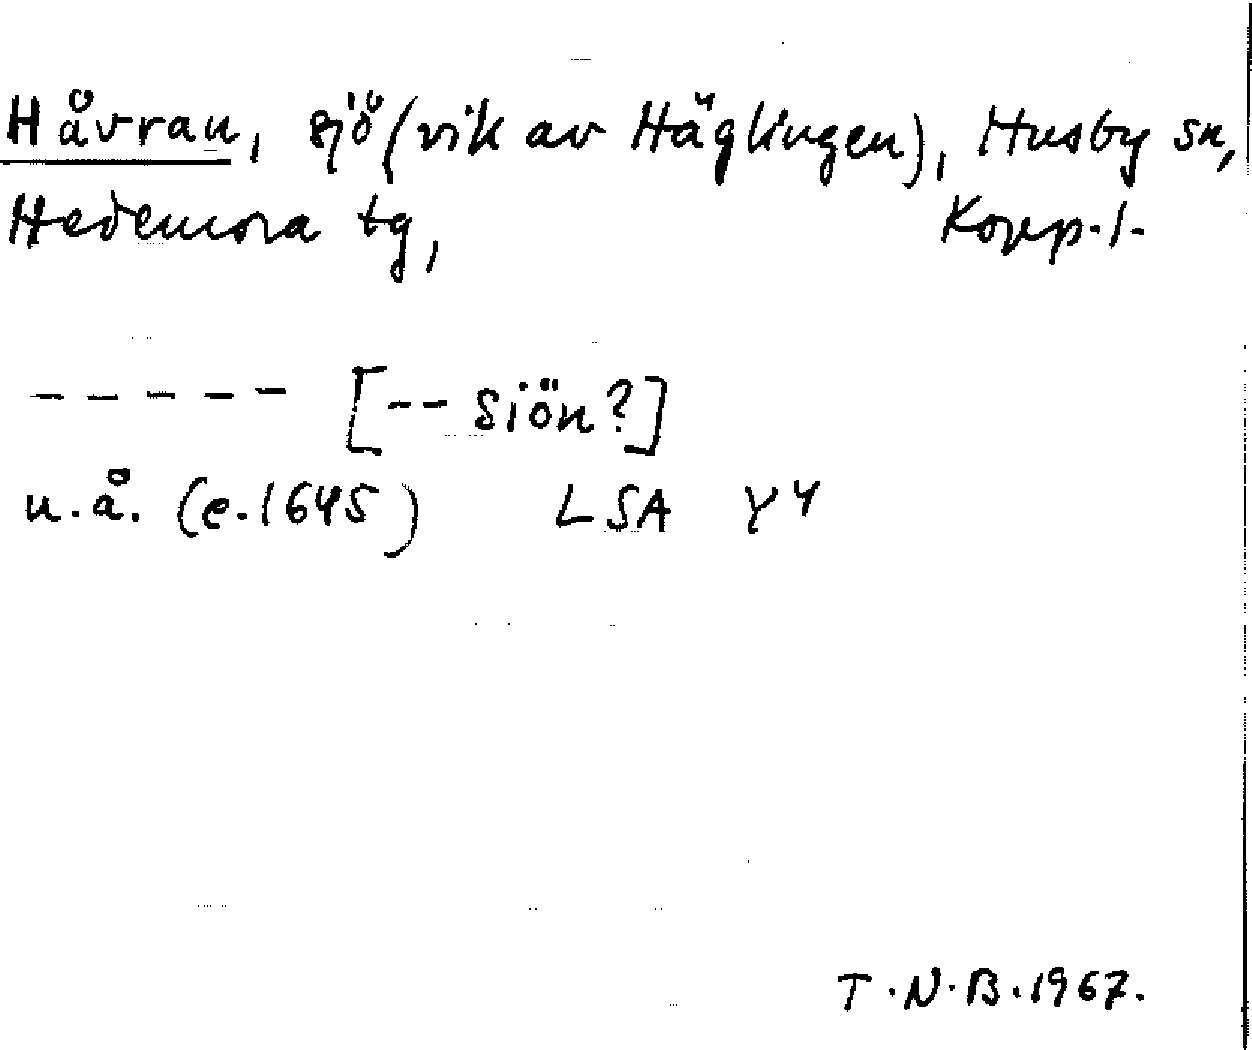 Håvran, sjö (vik av Häglingen), Husby sn,
Hedemora tg, Kopp. l.
----- [-- Siön?]
u.å. (e. 1645) LSA Y 4
T.N.B. 1967.